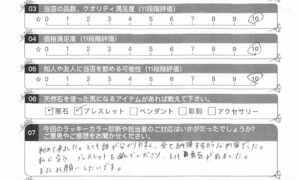 03 当店の品数、クオリティ満足度 (11段階評価)
0 1 2 3 4 5 6 7 8 9 10
04 価格満足度 (11段階評価)
0 1 2 3 4 5 6 7 8 9 10
05 知人や友人に当店を勧める可能性 (11段階評価)
0 1 2 3 4 5 6 7 8 9 10
06 天然石を使った気になるアイテムがあれば教えて下さい。
原石 ブレスレット ペンダント 彫刻 アクセサリー
07 今回のラッキーカラー診断や担当者のご対応はいかがだったでしょうか?
ご意見やご感想をお聞かせください。
初めて来ました。とても話が分りやすく、全て納得するような内容でした。
私に合う ブレスレットを
またお願いしたいです。